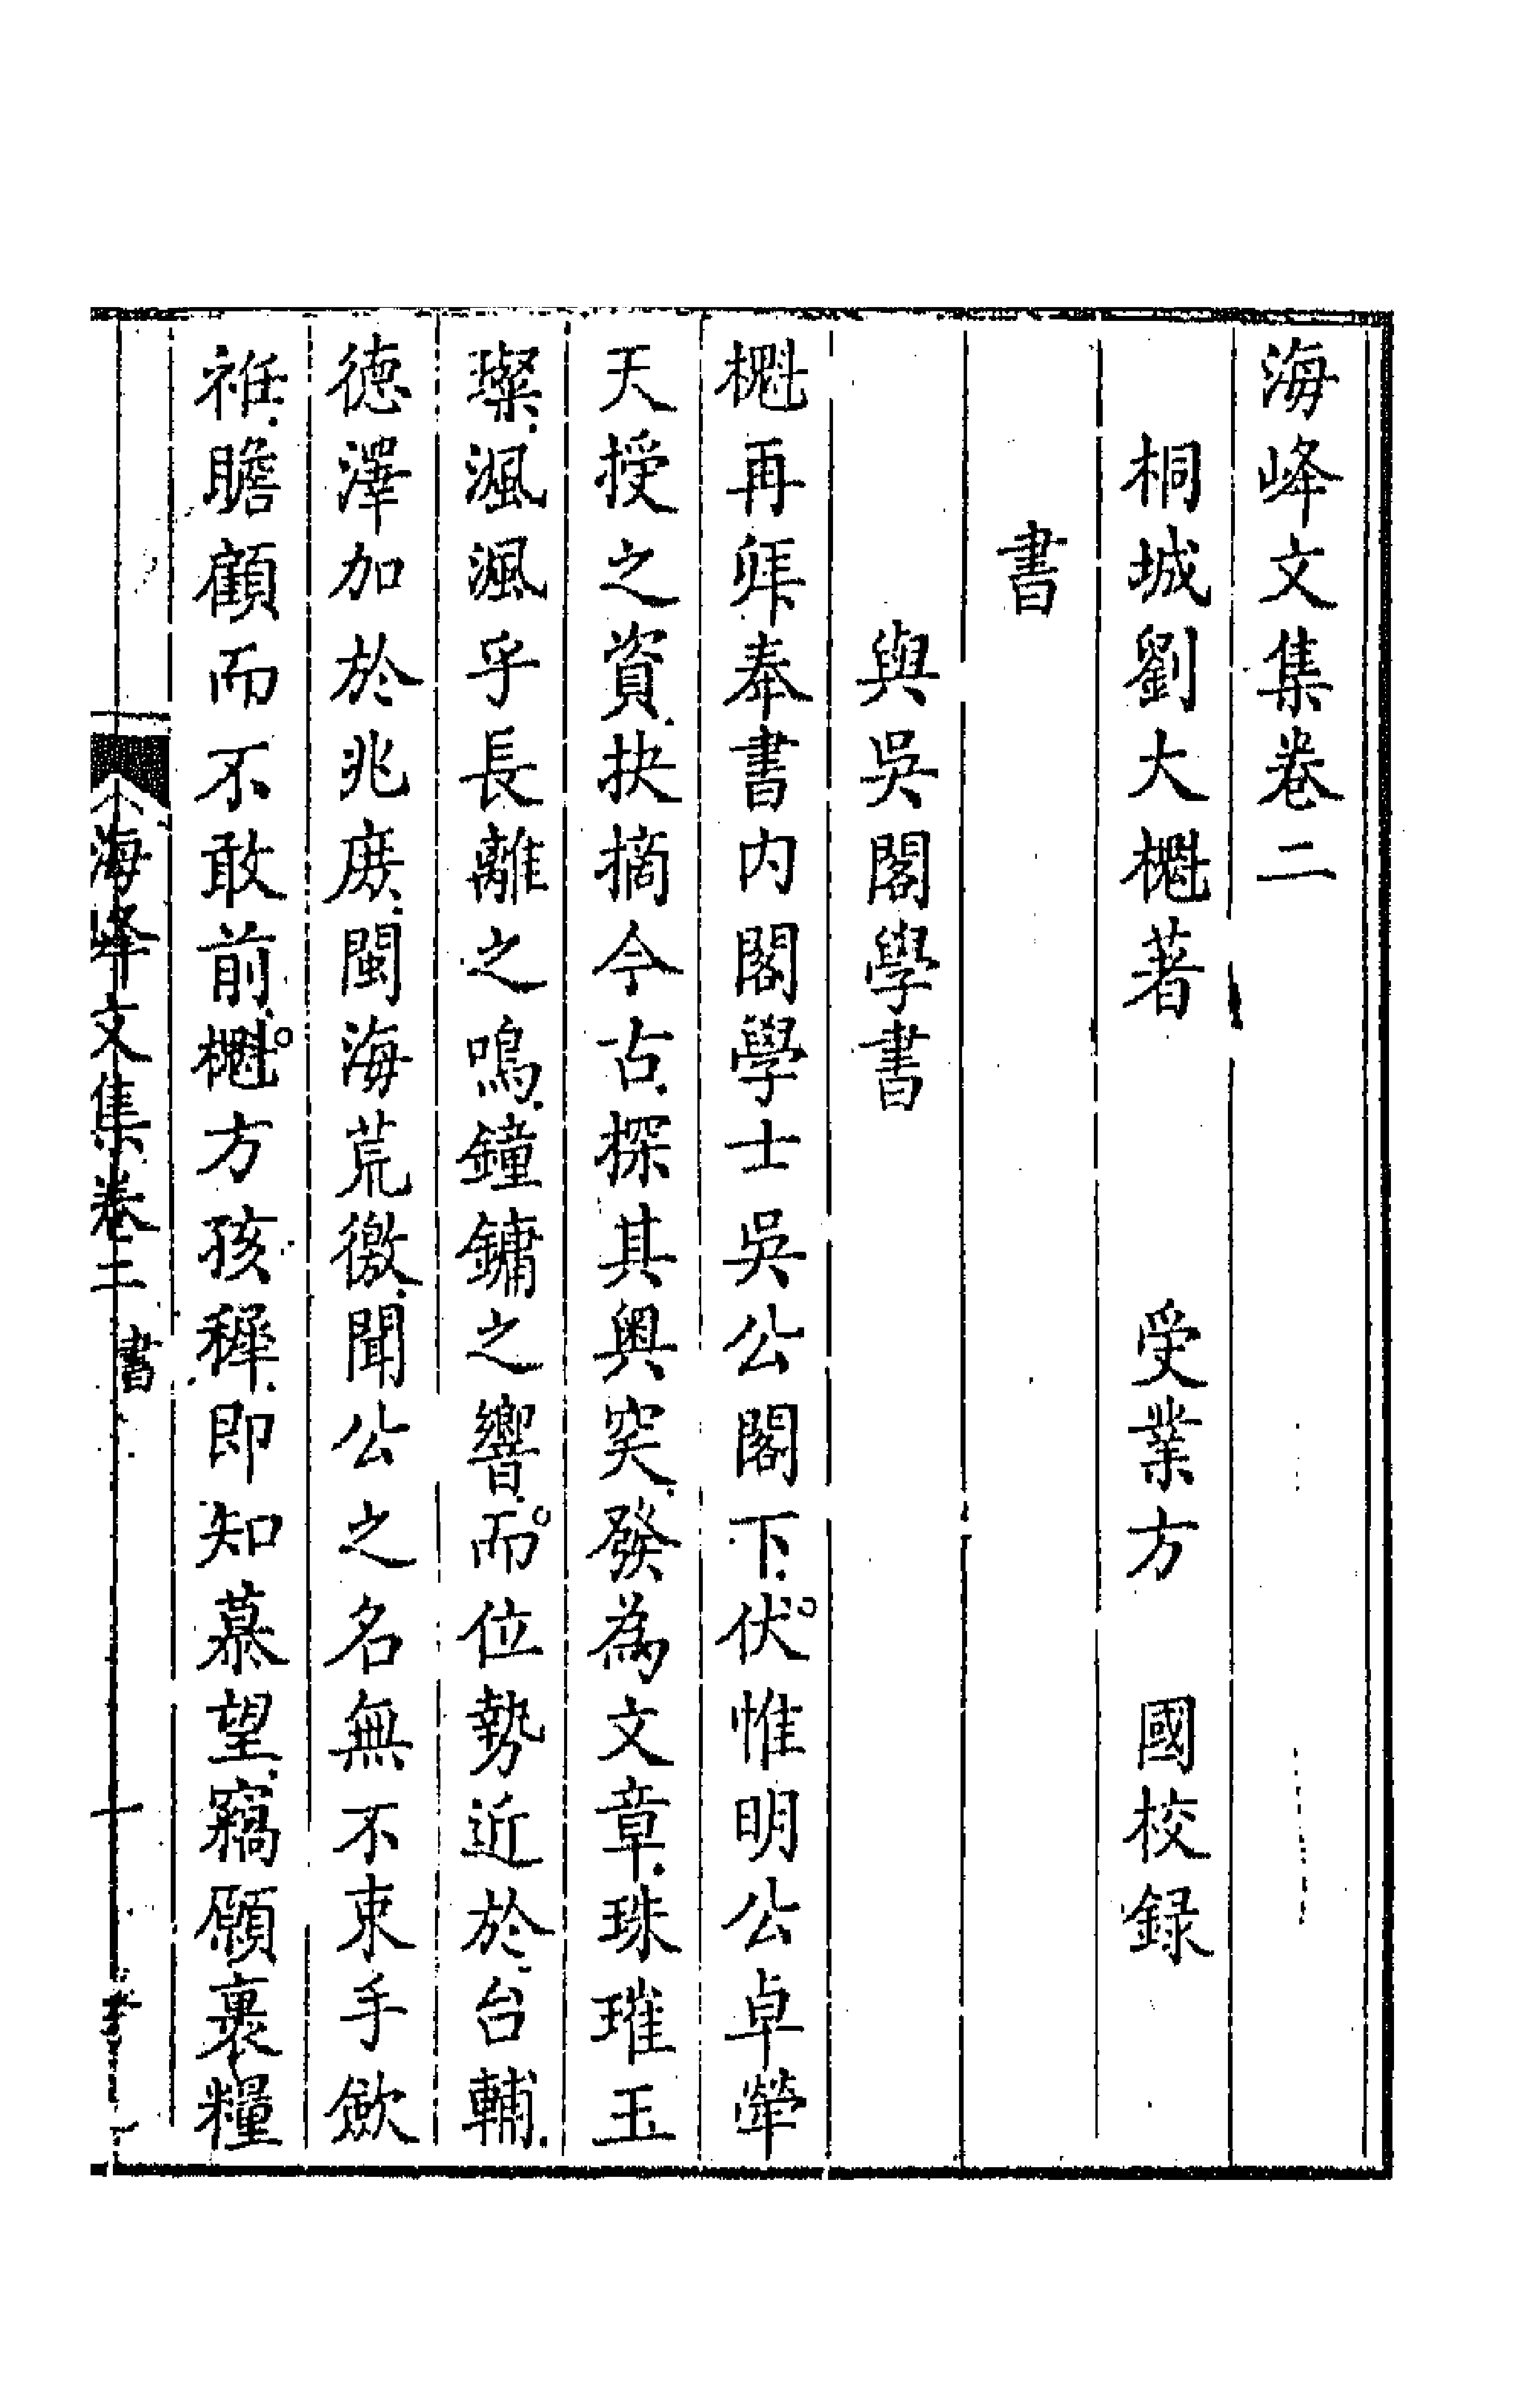 海峰文集卷二
桐城劉大櫆著　受業方　國校録
書
與吳閣學書
櫆再拜奉書内閣學士吳公閣下伏惟明公卓犖
天授之資抉摘今古探其奥窔發為文章珠璀玉
璨渢渢乎長離之鳴鐘鏞之響而位勢近於台輔
徳澤加於兆庻閩海荒徼聞公之名無不束手歛
袵瞻顧而不敢前櫆方孩穉即知慕望竊願裹糧
海峰文集卷二　書　十